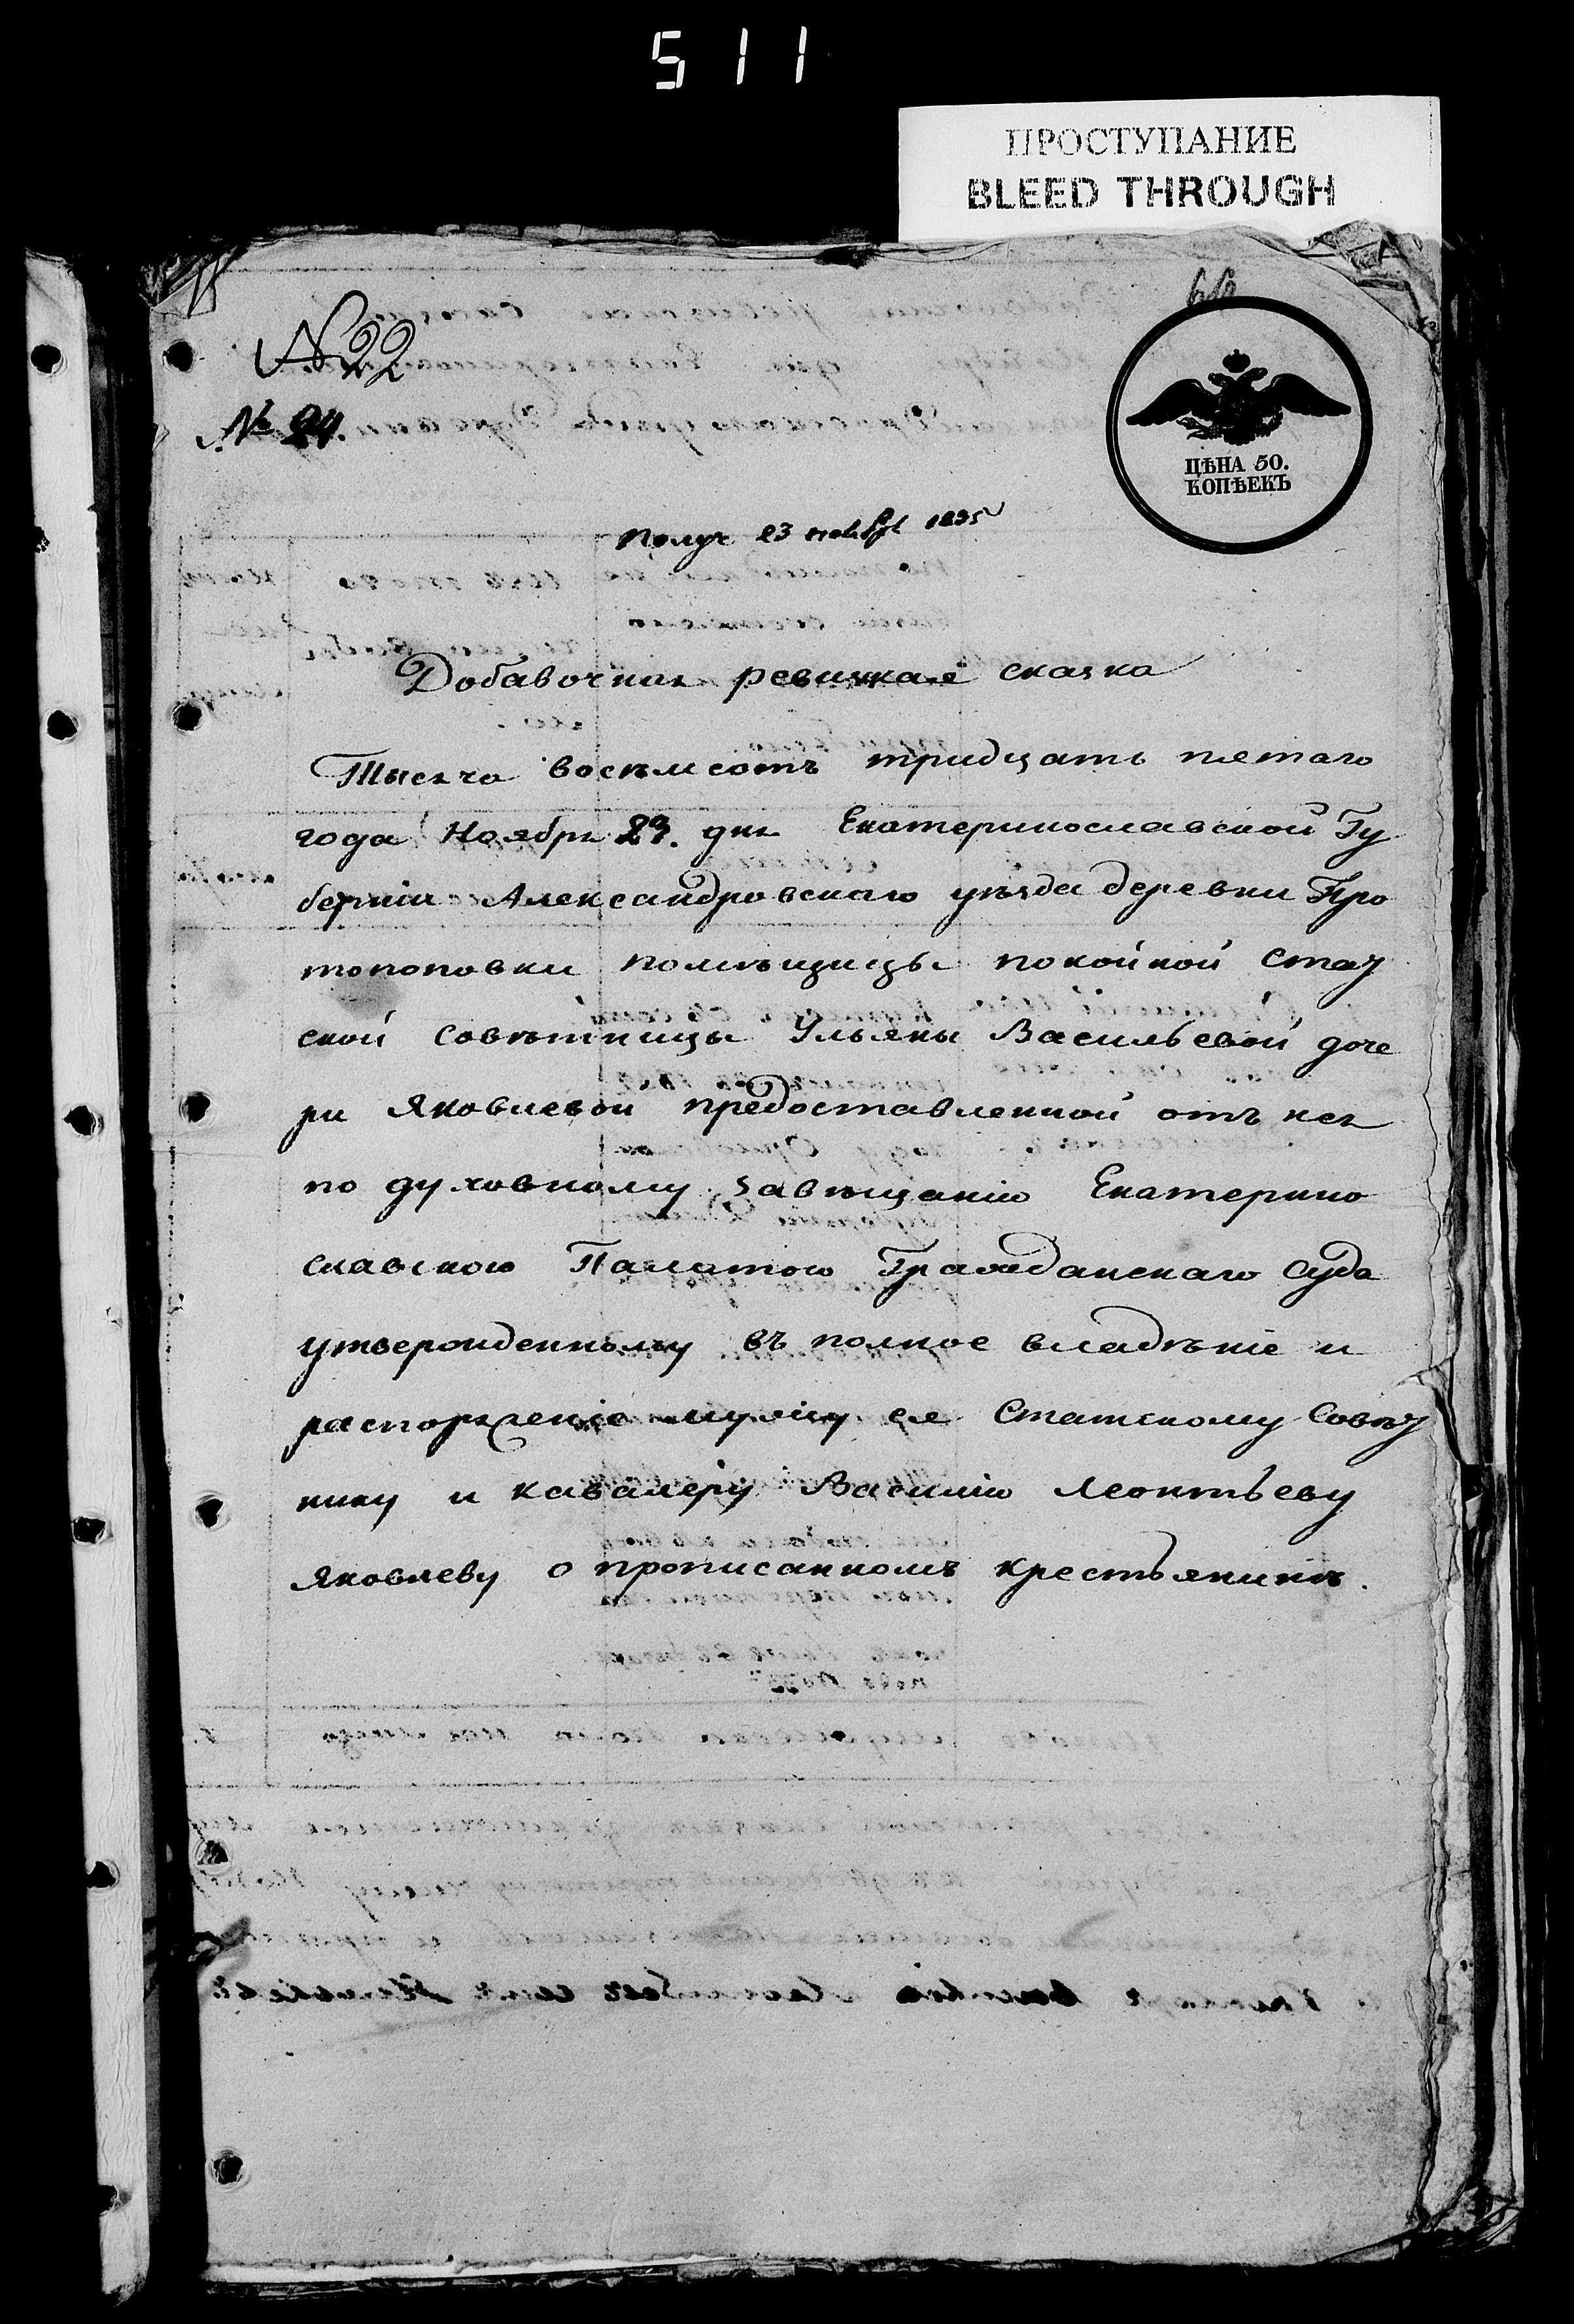 511
ПРОСТУПАНИЕ
BLEED THROUGH
№ 22
№ 24.
ЦѢНА 50.
КОПѢЕКЪ
Получ 23 ноября 1835
Добавочная ревизкая сказка
Тысяча восѣмсотъ тридцать пятаго
года Ноября 23. дня Екатеринославской Гу
берніи Александровскаго уѣзда деревни Про
топоповки помѣщицы покойной Стат
ской совѣтницы Ульяны Васильевой доче
ри Яковлевой предоставленной отъ нея
по духовному завѣщанію Екатерино
славскою Палатою Гражданскаго Суда
утвержденному въ полное владѣніе и
распоряженіе мужу ея Статскому Совѣт
нику и кавалеру Василію Леонтьеву
Яковлеву о прописанномъ крестьянинѣ.